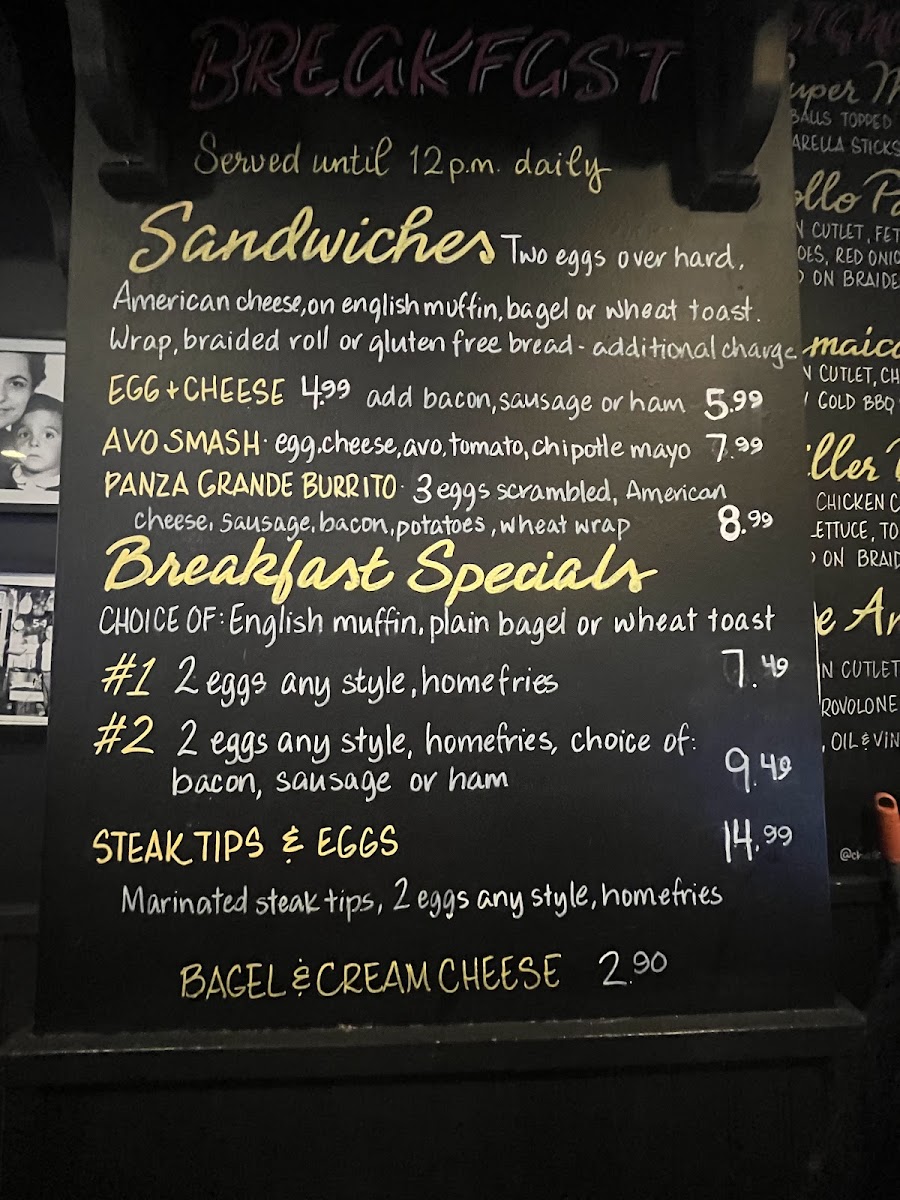 BREAKFAST
Served until 12 p.m. daily
Sandwiches Two eggs over hard,
American cheese, on english muffin, bagel or wheat toast.
Wrap, braided roll or gluten free bread - additional charge
EGG + CHEESE 4.99 add bacon, sausage or ham 5.99
AVO SMASH · egg, cheese, avo, tomato, chipotle mayo 7.99
PANZA GRANDE BURRITO · 3 eggs scrambled, American
cheese, sausage, bacon, potatoes, wheat wrap 8.99
Breakfast Specials
CHOICE OF: English muffin, plain bagel or wheat toast
#1 2 eggs any style, homefries 7.49
#2 2 eggs any style, homefries, choice of:
bacon, sausage or ham 9.49
STEAK TIPS & EGGS 14.99
Marinated steak tips, 2 eggs any style, homefries
BAGEL & CREAM CHEESE 2.90
BALLS TOPPED
STICKS
CUTLET, FET
RED ONIO
ON BRAIDE
CUTLET, CH
GOLD BBQ
CHICKEN C
LETTUCE, TO
ON BRAID
CUTLET
ROVOLONE
, OIL & VIN